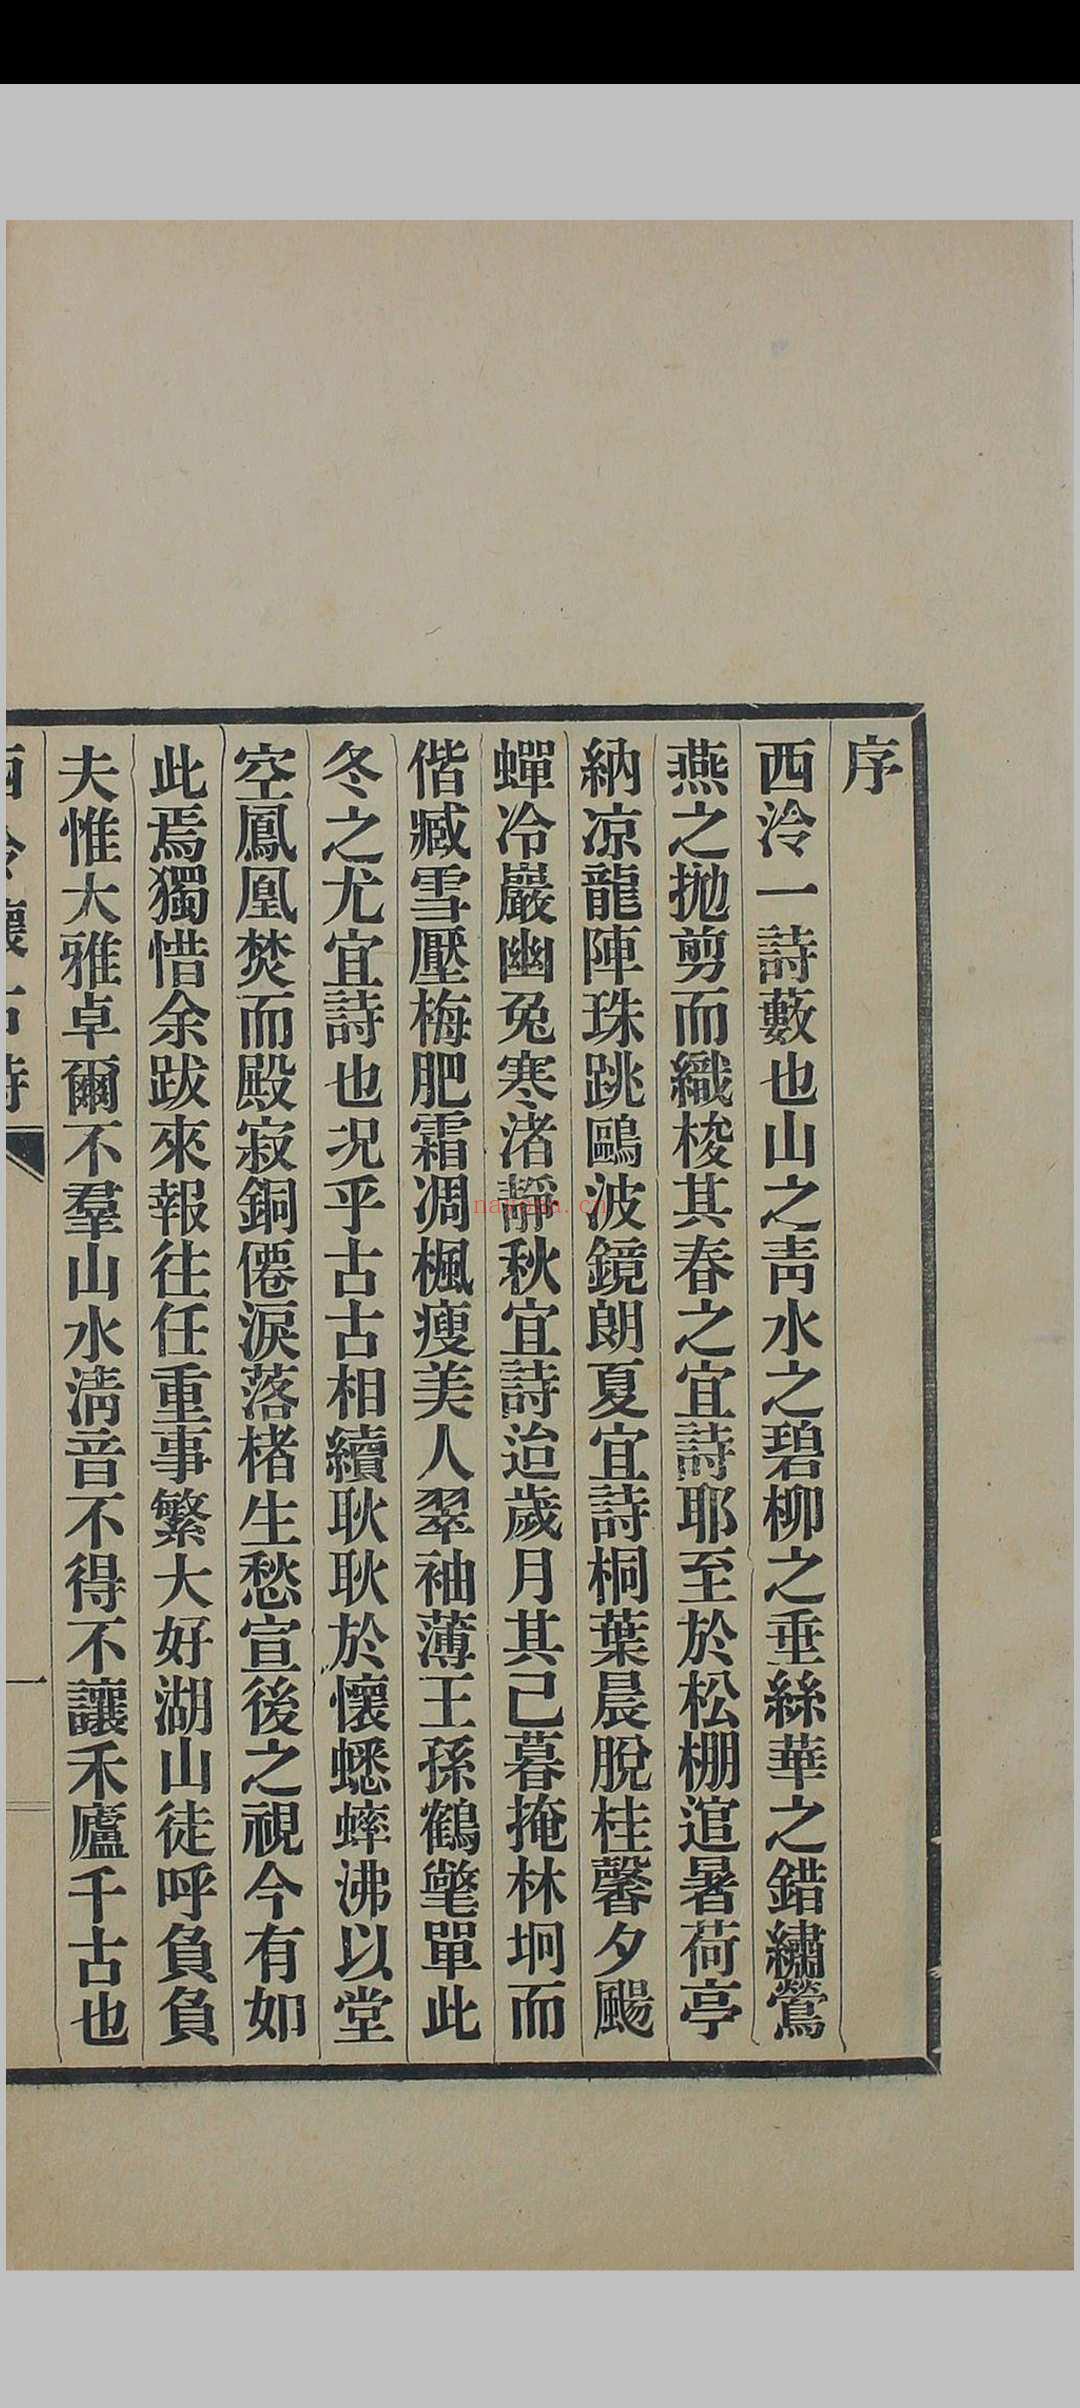 序
西泠一詩藪也山之青水之碧柳之垂絲華之錯繡鶯
燕之拋剪而織梭其春之宜詩耶至於松棚逭暑荷亭
納凉龍陣珠跳鷗波鏡朗夏宜詩桐葉晨脫桂馨夕颺
蟬冷巖幽兔寒渚靜秋宜詩迨歲月其已暮掩林坰而
偕臧雪壓梅肥霜凋楓瘦美人翠袖薄王孫鶴氅單此
冬之尤宜詩也况乎古古相續耿耿於懷蟋蟀沸以堂
空鳳凰焚而殿寂銅僊淚落楮生愁宣後之視今有如
此焉獨惜余跋來報往任重事繁大好湖山徒呼負負
夫惟大雅卓爾不羣山水淸音不得不讓禾廬千古也
西泠懷古詩
一
nayona.cn